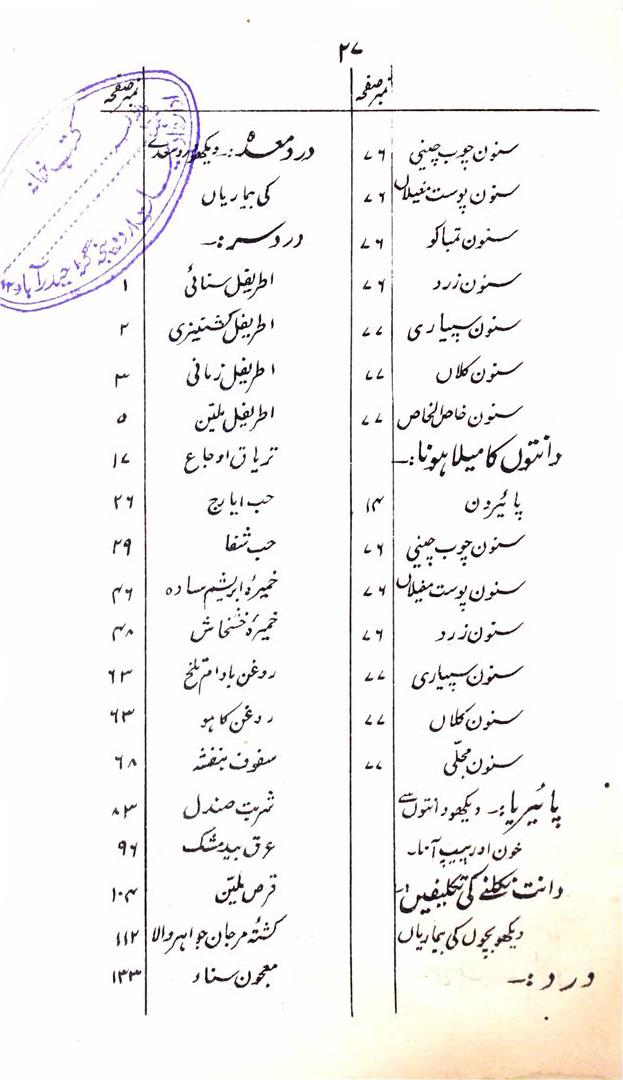 ۲۷
نمبر صفحہ
سنون چوب چینی ۷۶
سنون پوست مغیلاں ۷۶
سنون تمباکو ۷۶
سنون زرد ۷۶
سنون سپیاری ۷۷
سنون کلاں ۷۷
سنون خاص الخاص ۷۷
دانتوں کا میلا ہونا:۔
پائیرڈن ۱۴
سنون چوب چینی ۷۶
سنون پوست مغیلاں ۷۶
سنون زرد ۷۶
سنون سپیاری ۷۷
سنون کلاں ۷۷
سنون مجلّی ۷۷
پائیریا:۔ دیکھو دانتوں سے
خون اور پیپ آنا۔
دانت نکلنے کی تکلیفیں:۔
دیکھو بچوں کی بیماریاں
درد:۔
نمبر صفحہ
درد معدہ:۔ دیکھو معدے
کی بیماریاں
درد سر:۔
اطریفل سنائی ۱
اطریفل کشنیزی ۲
اطریفل زمانی ۳
اطریفل ملیّن ۵
تریاق اوجاع ۱۷
حب ایارج ۲۶
حب شفا ۲۹
خمیرۂ ابریشم سادہ ۴۶
خمیرۂ خشخاش ۴۸
روغن بادام تلخ ۶۳
روغن کاہو ۶۳
سفوف بنفشہ ۶۸
شربت صندل ۸۳
عرق بیدمشک ۹۶
قرص ملیّن ۱۰۴
کشتۂ مرجان جواہر والا ۱۱۲
معجون سناء ۱۳۳
کتب خانہ
اردو
حیدرآباد